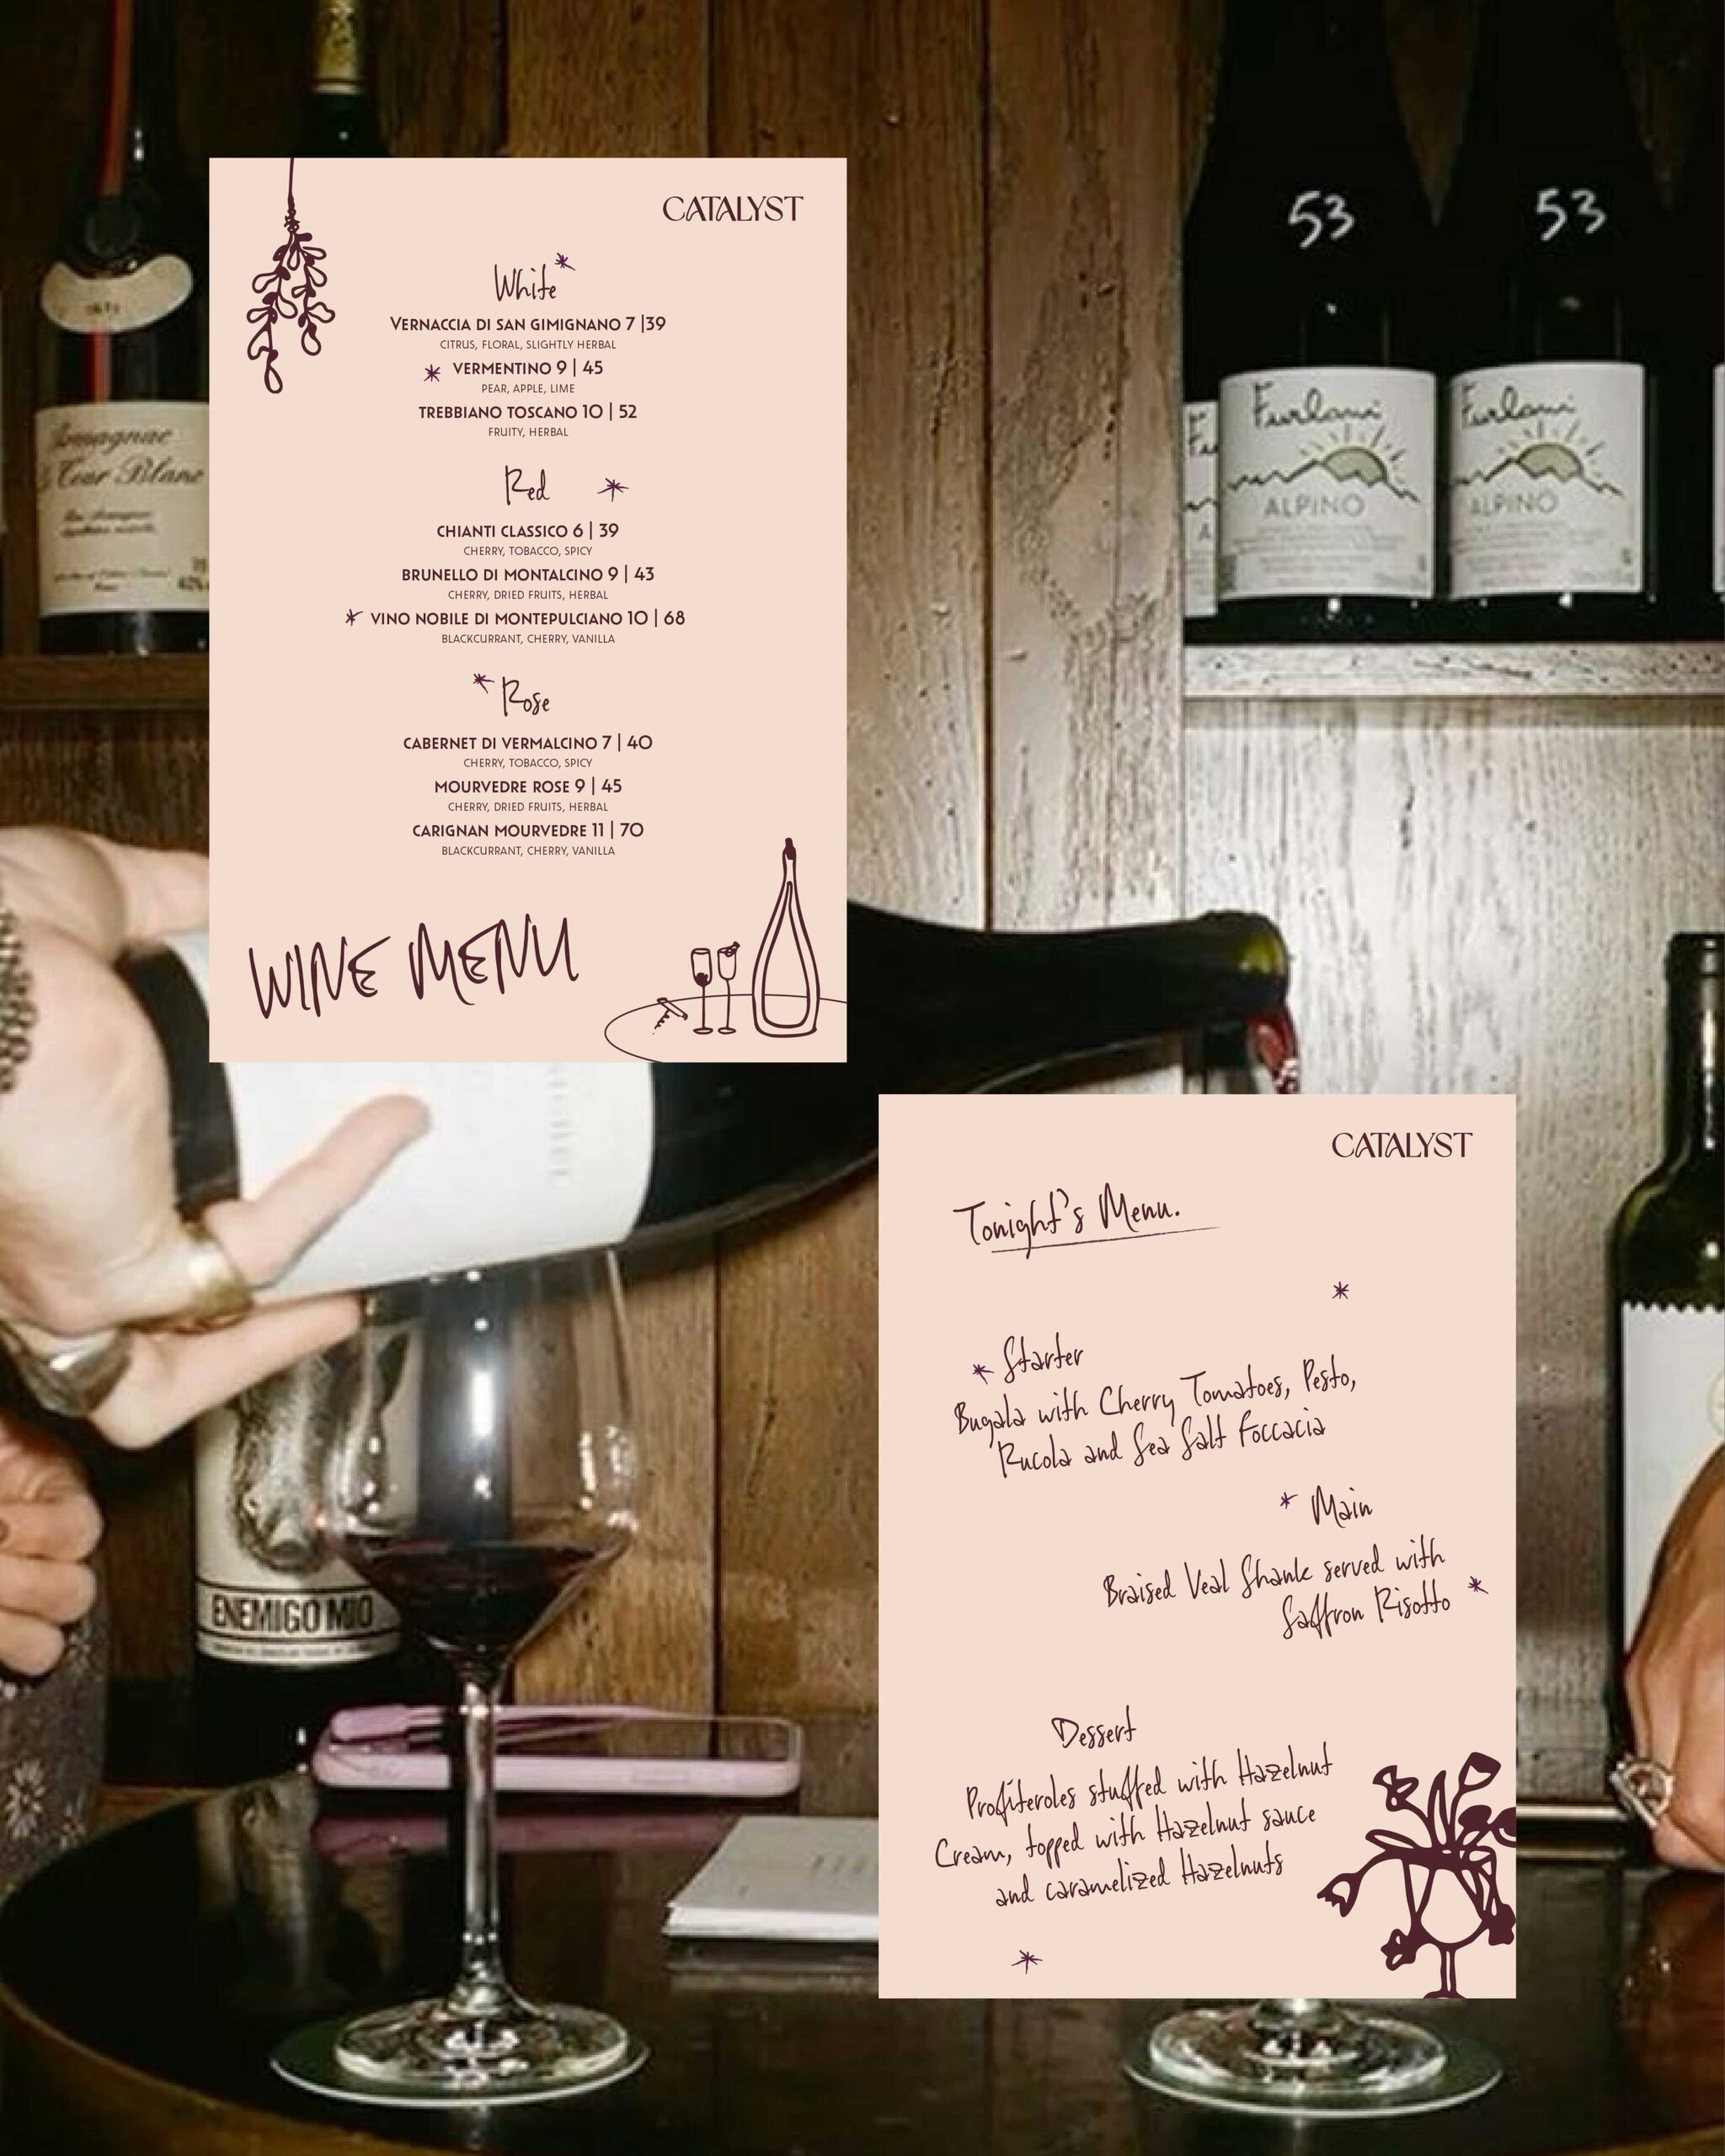 CATALYST
White
VERNACCIA DI SAN GIMIGNANO 7 |39
CITRUS, FLORAL, SLIGHTLY HERBAL
VERMENTINO 9 | 45
PEAR, APPLE, LIME
TREBBIANO TOSCANO 10 | 52
FRUITY, HERBAL
Red
CHIANTI CLASSICO 6 | 39
CHERRY, TOBACCO, SPICY
BRUNELLO DI MONTALCINO 9 | 43
CHERRY, DRIED FRUITS, HERBAL
VINO NOBILE DI MONTEPULCIANO 10 | 68
BLACKCURRANT, CHERRY, VANILLA
Rose
CABERNET DI VERMALCINO 7 | 40
CHERRY, TOBACCO, SPICY
MOURVEDRE ROSE 9 | 45
CHERRY, DRIED FRUITS, HERBAL
CARIGNAN MOURVEDRE 11 | 70
BLACKCURRANT, CHERRY, VANILLA
WINE MENU
53
53
Furlani
ALPINO
Furlani
ALPINO
Tour Blanc
ENEMIGO MIO
CATALYST
Tonight's Menu.
Starter
Bugala with Cherry Tomatoes, Pesto,
Rucola and Sea Salt Foccacia
Main
Braised Veal Shank served with
Saffron Risotto
Dessert
Profiteroles stuffed with Hazelnut
Cream, topped with Hazelnut sauce
and caramelized Hazelnuts